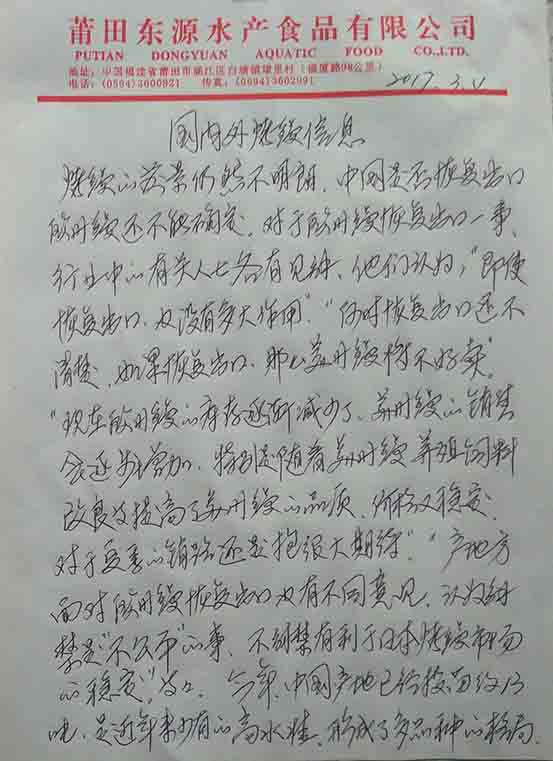 莆田东源水产食品有限公司
PUTIAN DONGYUAN AQUATIC FOOD CO.,LTD.
地址：中国福建省莆田市涵江区白塘镇埭里村（福厦路98公里）
电话：(0594)3600921 传真：(0594)3602991
2017.3.1
国内外烤鳗信息
烤鳗的前景仍然不明朗，中国是否恢复出口
欧洲鳗还不能确定。对于欧州鳗恢复出口一事、
行业中的有关人士各有见解、他们认为，“即使
恢复出口、也没有多大作用”。“何时恢复出口还不
清楚，如果恢复出口、那么美州鳗将不好卖”。
“现在欧州鳗的库存逐渐减少了、美州鳗的销售
会逐步增加、特别是随着美州鳗养殖饲料
改良及提高了美州鳗的品质、价格又稳定、
对于夏季的销路还是抱很大期待”。“产地方
面对欧州鳗恢复出口也有不同意见、认为解
禁是“不公平”的事、不解禁有利于日本烤鳗市场
的稳定”等等。今年、中国产地已经投苗约13
吨、是近年来少有的高水准、形成了多品种的格局